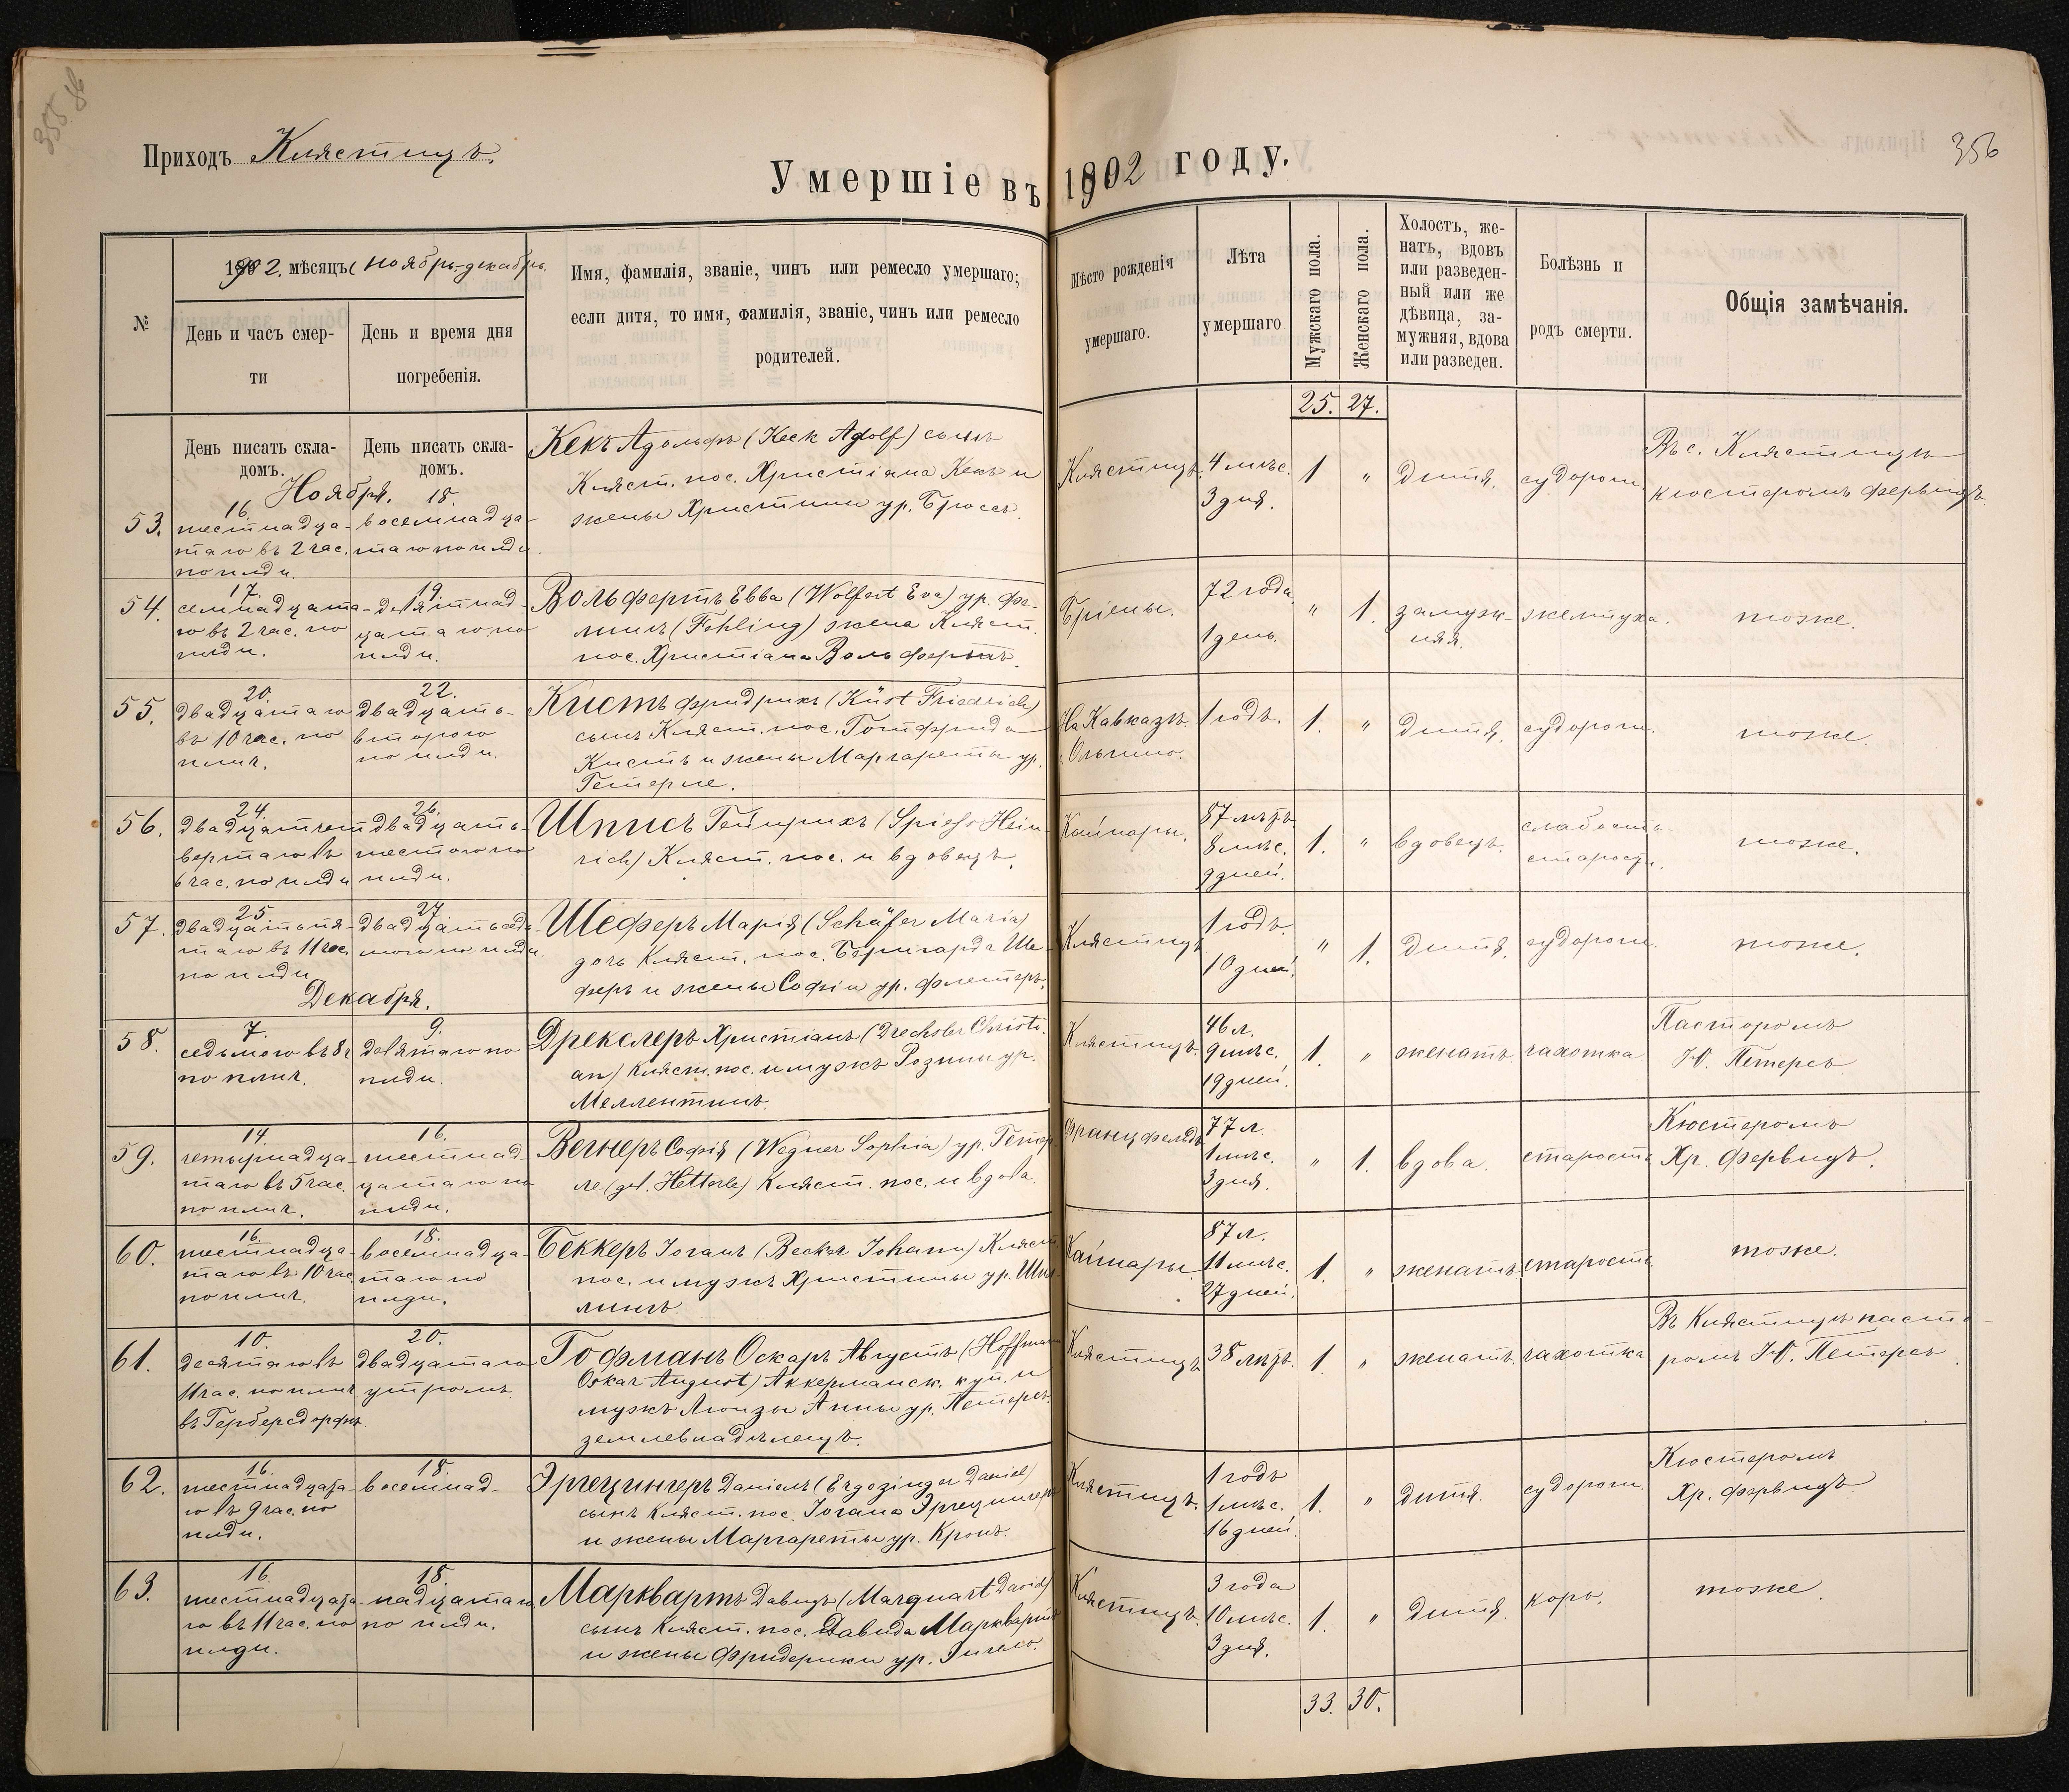 355. об
Приходъ Клястицъ.
356
Умершіе въ 1902 году.
№
1902. мѣсяцъ (Ноябрь-декабрь.
День и часъ смер-
ти
День и время дня
погребенія.
Имя, фамилія, званіе, чинъ или ремесло умершаго;
если дитя, то имя, фамилія, званіе, чинъ или ремесло
родителей.
Мѣсто рожденія
умершаго.
Лѣта
умершаго
Мужскаго пола.
Женскаго пола.
Холостъ, же-
натъ, вдовъ
или разведен-
ный или же
дѣвица, за-
мужняя, вдова
или разведен.
Болѣзнь и
родъ смерти.
Общія замѣчанія.
25. 27.
День писать скла-
домъ.
День писать скла-
домъ.
Ноября.
53.
16.
шестнадца-
таго въ 2 час.
по плдн.
18.
восемнадца-
таго по плдн.
Кекъ Адольфъ (Keck Adolf) сынъ
Кляст. пос. Христіана Кекъ и
жены Христины ур. Брюссъ.
Клястицъ.
4 мѣс.
3 дня.
1 " дитя. судороги.
Въ с. Клястицъ
кюстеромъ Фервицъ.
54.
17.
семнадцата-
го въ 2 час. по
плдн.
19.
девятнад-
цатаго по
плдн.
Вольфертъ Евва (Wolfert Eva) ур. Фе-
лингъ (Fehling) жена Кляст.
пос. Христіана Вольфертъ.
Бріены.
72 года
1 день.
" 1. замуж-
няя.
желтуха. тоже.
55.
20.
двадцатаго
въ 10 час. по
плнч.
22.
двадцать-
второго
по плдн.
Кистъ Фридрихъ (Küst Friedrich)
сынъ Кляст. пос. Готфрида
Кистъ и жены Маргареты ур.
Гетерле.
На Кавказѣ.
Ольгино.
1 годъ. 1. " дитя. судороги. тоже.
56.
24.
двадцатчет
вертаго въ
6 час. по плдн
26.
двадцать-
шестого по
плдн.
Шписъ Гейнрихъ (Spiess Hein-
rich) Кляст. пос. и вдовецъ.
Кайнары.
87 лѣтъ
8 мѣс.
9 дней.
1. " вдовецъ.
слабость
старости.
тоже.
57.
25.
двадцатьпя-
таго въ 11 час.
по плдн
27.
двадцатьседь-
мого по плдн.
Шеферъ Марія (Schäfer Maria)
дочь Кляст. пос. Бернгарда Ше-
феръ и жены Софіи ур. Флетеръ.
Клястицъ
1 годъ.
10 дней.
" 1. дитя. судороги. тоже.
Декабря.
58.
7.
седьмого въ 8 ч
по плнч.
9.
девятаго по
плдн.
Дрекслеръ Христіанъ (Drechsler Christi-
an) Кляст. пос. и мужъ Розины ур.
Меллентинъ.
Клястицъ.
46 л.
9 мѣс.
19 дней.
1. " женатъ чахотка
Пасторомъ
Ю. Петерсъ
59.
14.
четырнадца-
таго въ 5 час.
по плнч.
16.
шестнад-
цатаго по
плдн.
Вегнеръ Софія (Wegner Sophia) ур. Гетер-
ле (geb. Hetterle) Кляст. пос. и вдова.
Францфельдъ
77 л.
1 мѣс.
3 дня.
" 1. вдова. старость
Кюстеромъ
Хр. Фервицъ.
60.
16.
шестнадца-
таго въ 10 час.
по плнч.
18.
восемнадца-
таго по
плдн.
Беккеръ Іоганъ (Becker Johann) Кляст.
пос. и мужъ Христины ур. Ши-
лингъ.
Кайнары
87 л.
11 мѣс.
27 дней.
1. " женатъ старость тоже.
61.
10.
десятаго въ
11 час. по плнч
въ Герберсдорфѣ.
20.
двадцатаго
утромъ.
Гофманъ Оскаръ Августъ (Hoffmann
Oskar August) Аккерманск. куп. и
мужъ Люизы Анны ур. Петерсъ.
землевладѣлецъ.
Клястицъ
38 лѣтъ. 1. " женатъ. чахотка
Въ Клястицѣ пасто-
ромъ Ю. Петерсъ.
62.
16.
шестнадцата-
го въ 9 час. по
плдн.
18.
восемнад-
Эргецингеръ Даніелъ (Ergezinger Daniel)
сынъ Кляст. пос. Іогана Эргецингеръ
и жены Маргареты ур. Кронъ.
Клястицъ.
1 годъ
1 мѣс.
16 дней.
1. " дитя. судороги.
Кюстеромъ
Хр. Фервицъ
63.
16.
шестнадцата-
го въ 11 час. по
плдн.
18.
надцатаго
по плдн.
Марквартъ Давидъ (Marquart David)
сынъ Кляст. пос. Давида Марквартъ
и жены Фридерики ур.
Клястицъ.
3 года
10 мѣс.
3 дня.
1. " дитя. корь. тоже.
33. 30.